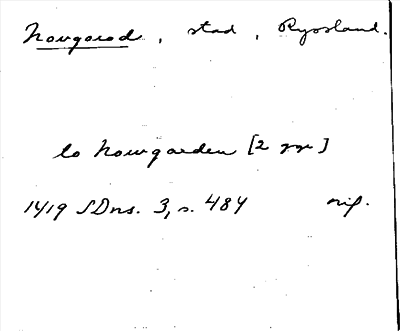 Novgorod, stad, Ryssland.
to Nowgarden [2 ggr]
1419 SDns. 3, s. 484 orig.